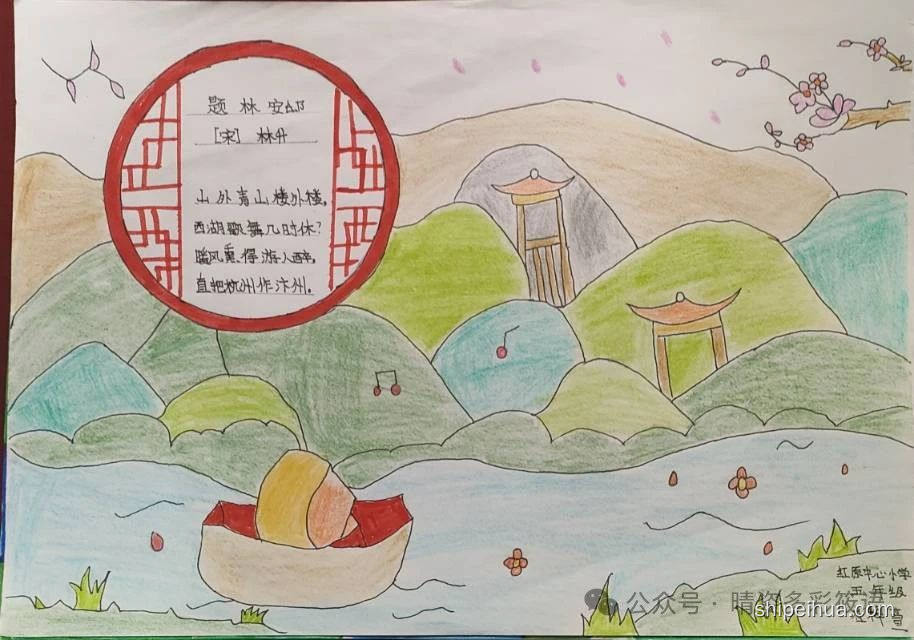 题林安邸
[宋] 林升
山外青山楼外楼,
西湖歌舞几时休?
暖风熏得游人醉,
直把杭州作汴州。
红原中心小学
五年级
公众号 · 晴姿多彩
shipeihua.com